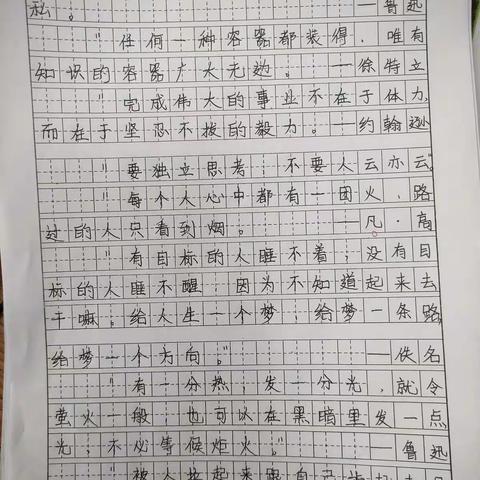 私。 ——鲁迅
"任何一种容器都装得,唯有
知识的容器广大无边。 ——徐特立
"完成伟大的事业不在于体力,
而在于坚忍不拔的毅力。——约翰逊
"要独立思考,不要人云亦云。"
"每个人心中都有一团火,路
过的人只看到烟。 ——凡·高
"有目标的人睡不着,没有目
标的人睡不醒,因为不知道起来去
干嘛。给人生一个梦,给梦一条路,
给梦一个方向。" ——佚名
"有一分热,发一分光,就令
萤火一般,也可以在黑暗里发一点
光,不必等候炬火。" ——鲁迅